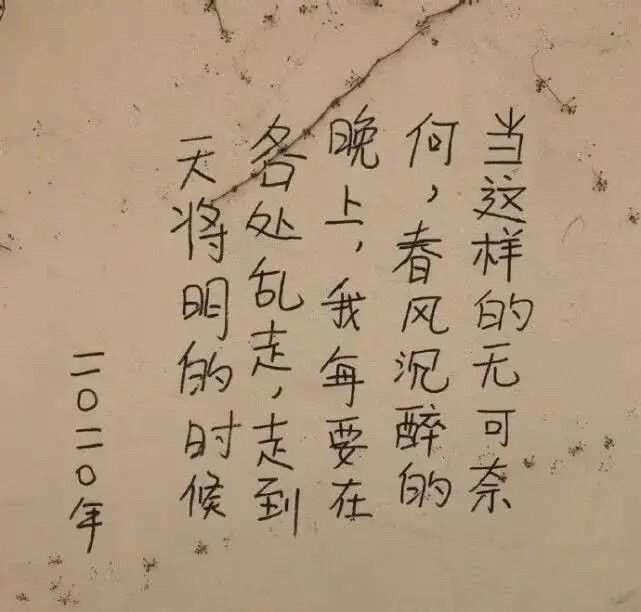 当这样的无可奈
何，春风沉醉的
晚上，我每要在
各处乱走，走到
天将明的时候
二〇二〇年